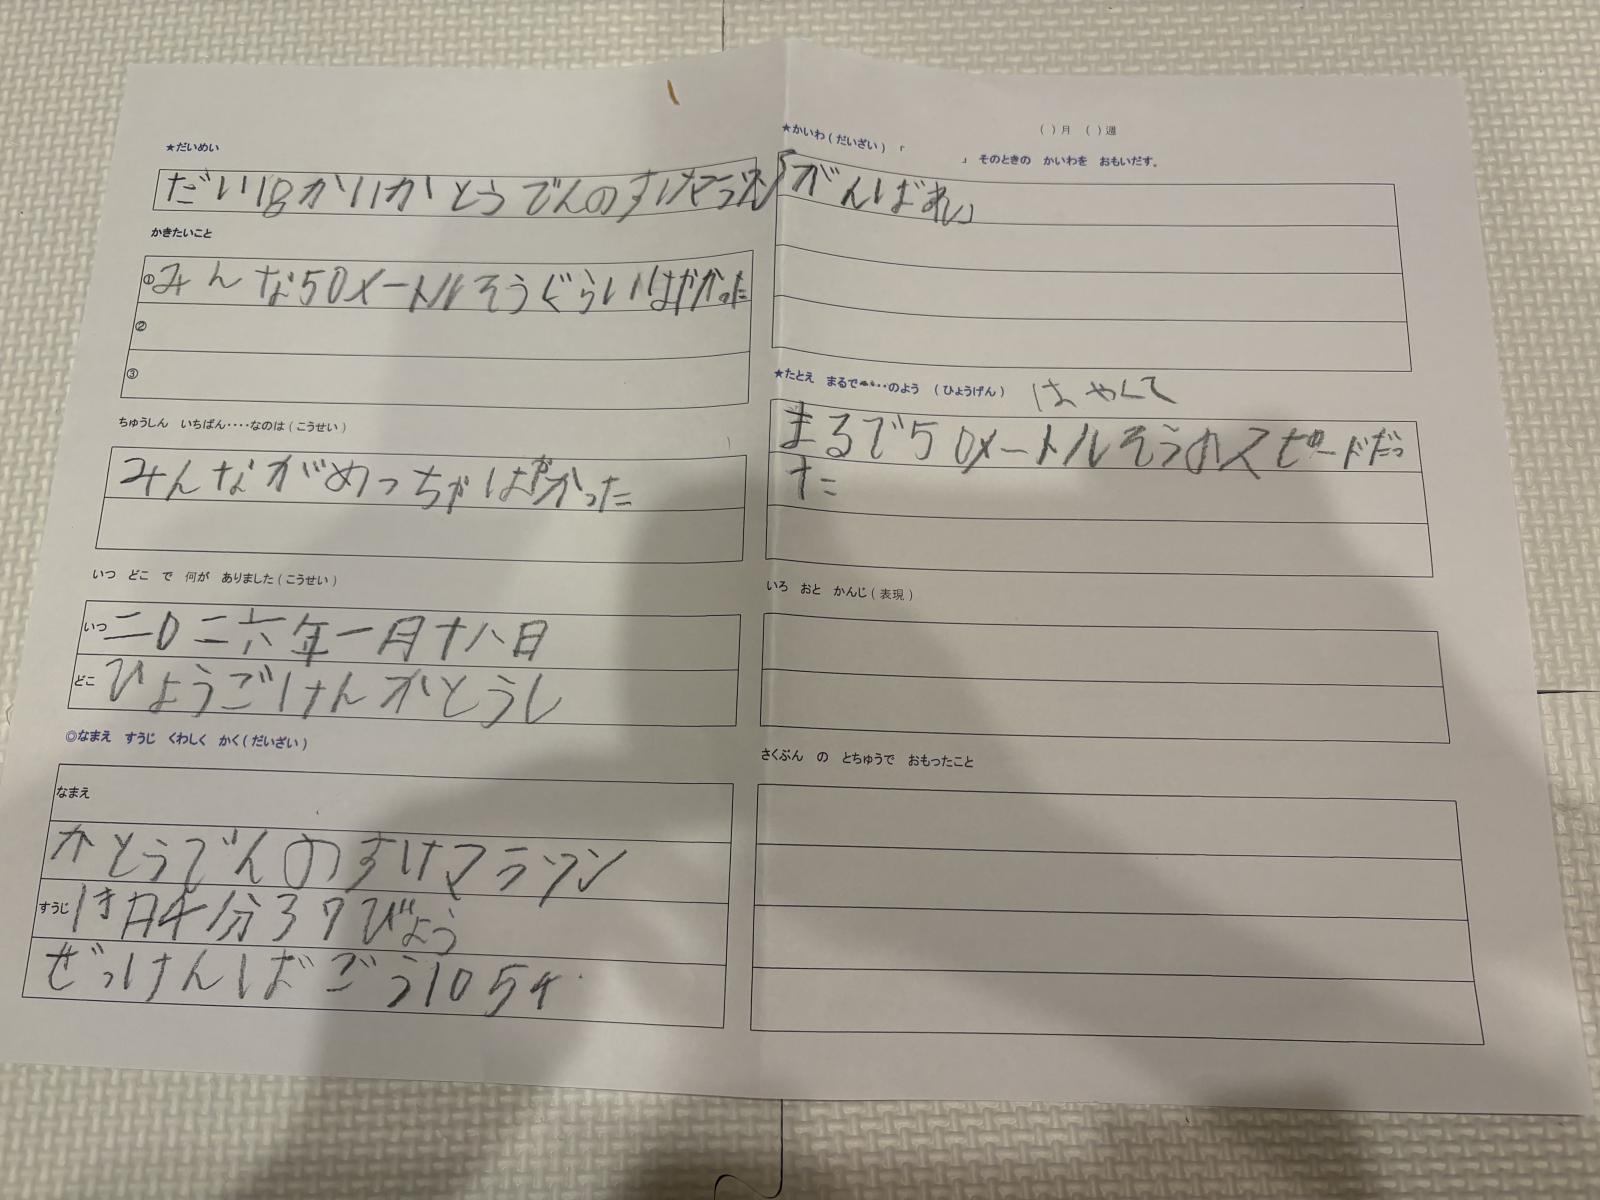 ★だいめい
だい18かいかとうでんのすけマラソン
かきたいこと
①みんな50メートルそうぐらいはやかった
②
③
ちゅうしん いちばん・・・・なのは(こうせい)
みんながめっちゃはやかった
いつ どこ で 何が ありました(こうせい)
いつ 二〇二六年一月十八日
どこ ひょうごけんかとうし
◎なまえ すうじ くわしく かく(だいざい)
なまえ
かとうでんのすけマラソン
すうじ 1時4分37びょう
ぜっけんばごう1054
( )月 ( )週
★かいわ(だいざい) 「 」 そのときの かいわを おもいだす。
「がんばれ」
★たとえ まるで・・・・のよう (ひょうげん)
はやくて
まるで50メートルそうのスピードだっ
た
いろ おと かんじ(表現)
さくぶん の とちゅうで おもったこと